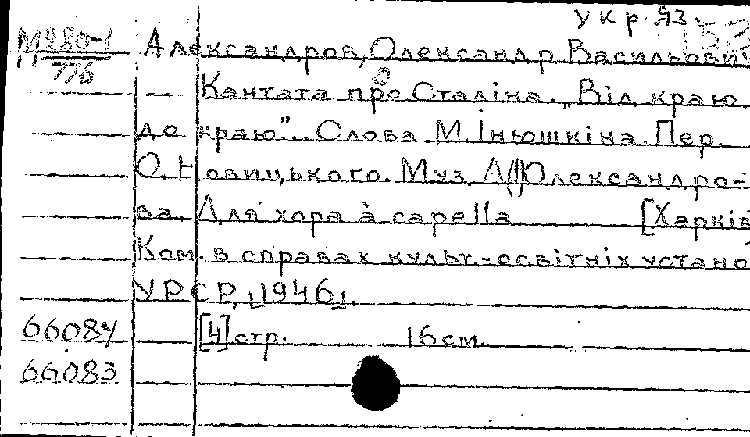 укр. яз
М980-1 Александров, Олександр Васильович
776
Кантата про Сталіна. „Від краю
до краю". Слова М. Інюшкіна. Пер.
О. Новицького. Муз. Олександро-
ва. Для хора a capella [Харків
Ком. в справах культ-освітніх устано
УРСР, 1946].
66084 [4] стр. 16 см.
66083